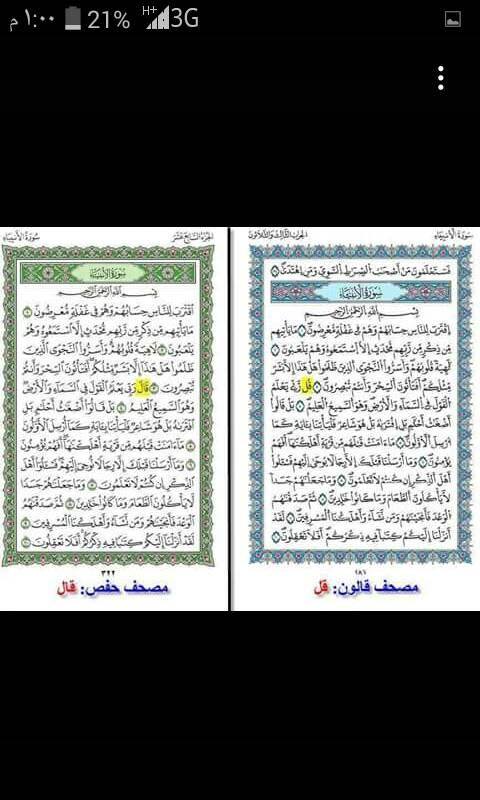 ١:٠٠ م 21% H+ 3G
سورة الأنبياء
الحزب الثالث والثلاثون
فستعلمون من أصحب الصرط السوي ومن اهتدى
سورة الأنبياء
بسم الله الرحمن الرحيم
اقترب للناس حسابهم وهم في غفلة معرضون ما يأتيهم
من ذكر من ربهم محدث إلا استمعوه وهم يلعبون
لاهية قلوبهم وأسروا النجوى الذين ظلموا هل هذا إلا بشر
مثلكم أفتأتون السحر وأنتم تبصرون قل ربي يعلم
القول في السماء والأرض وهو السميع العليم بل قالوا
أضغث أحلم بل افتريه بل هو شاعر فليأتنا بآية كما
أرسل الأولون ما ءامنت قبلهم من قرية أهلكنها أفهم
يؤمنون وما أرسلنا قبلك إلا رجالا يوحى إليهم فسئلوا
أهل الذكر إن كنتم لا تعلمون وما جعلنهم جسدا
لا يأكلون الطعام وما كانوا خلدين ثم صدقنهم
الوعد فأنجينهم ومن نشاء وأهلكنا المسرفين لقد
أنزلنا إليكم كتبا فيه ذكركم أفلا تعقلون
مصحف قالون: قل
الجزء السابع عشر
سورة الأنبياء
سورة الأنبياء
بسم الله الرحمن الرحيم
اقترب للناس حسابهم وهم في غفلة معرضون
ما يأتيهم من ذكر من ربهم محدث إلا استمعوه وهم
يلعبون لاهية قلوبهم وأسروا النجوى الذين
ظلموا هل هذا إلا بشر مثلكم أفتأتون السحر وأنتم
تبصرون قال ربي يعلم القول في السماء والأرض
وهو السميع العليم بل قالوا أضغث أحلم بل
افتريه بل هو شاعر فليأتنا بآية كما أرسل الأولون
ما ءامنت قبلهم من قرية أهلكنها أفهم يؤمنون
وما أرسلنا قبلك إلا رجالا نوحي إليهم فسئلوا أهل
الذكر إن كنتم لا تعلمون وما جعلنهم جسدا
لا يأكلون الطعام وما كانوا خلدين ثم صدقنهم
الوعد فأنجينهم ومن نشاء وأهلكنا المسرفين
لقد أنزلنا إليكم كتبا فيه ذكركم أفلا تعقلون
٣٢٢
مصحف حفص: قال